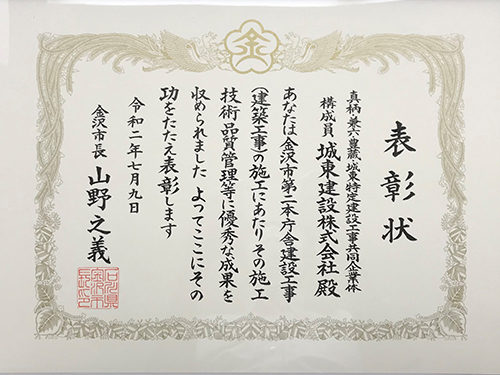 金
表彰状
真柄・兼六・豊蔵・城東特定建設工事共同企業体
構成員 城東建設株式会社 殿
あなたは金沢市第二本庁舎建設工事
(建築工事)の施工にあたりその施工
技術・品質管理等に優秀な成果を
収められました よってここにその
功をたたえ表彰します
令和二年七月九日
金沢市長 山野之義